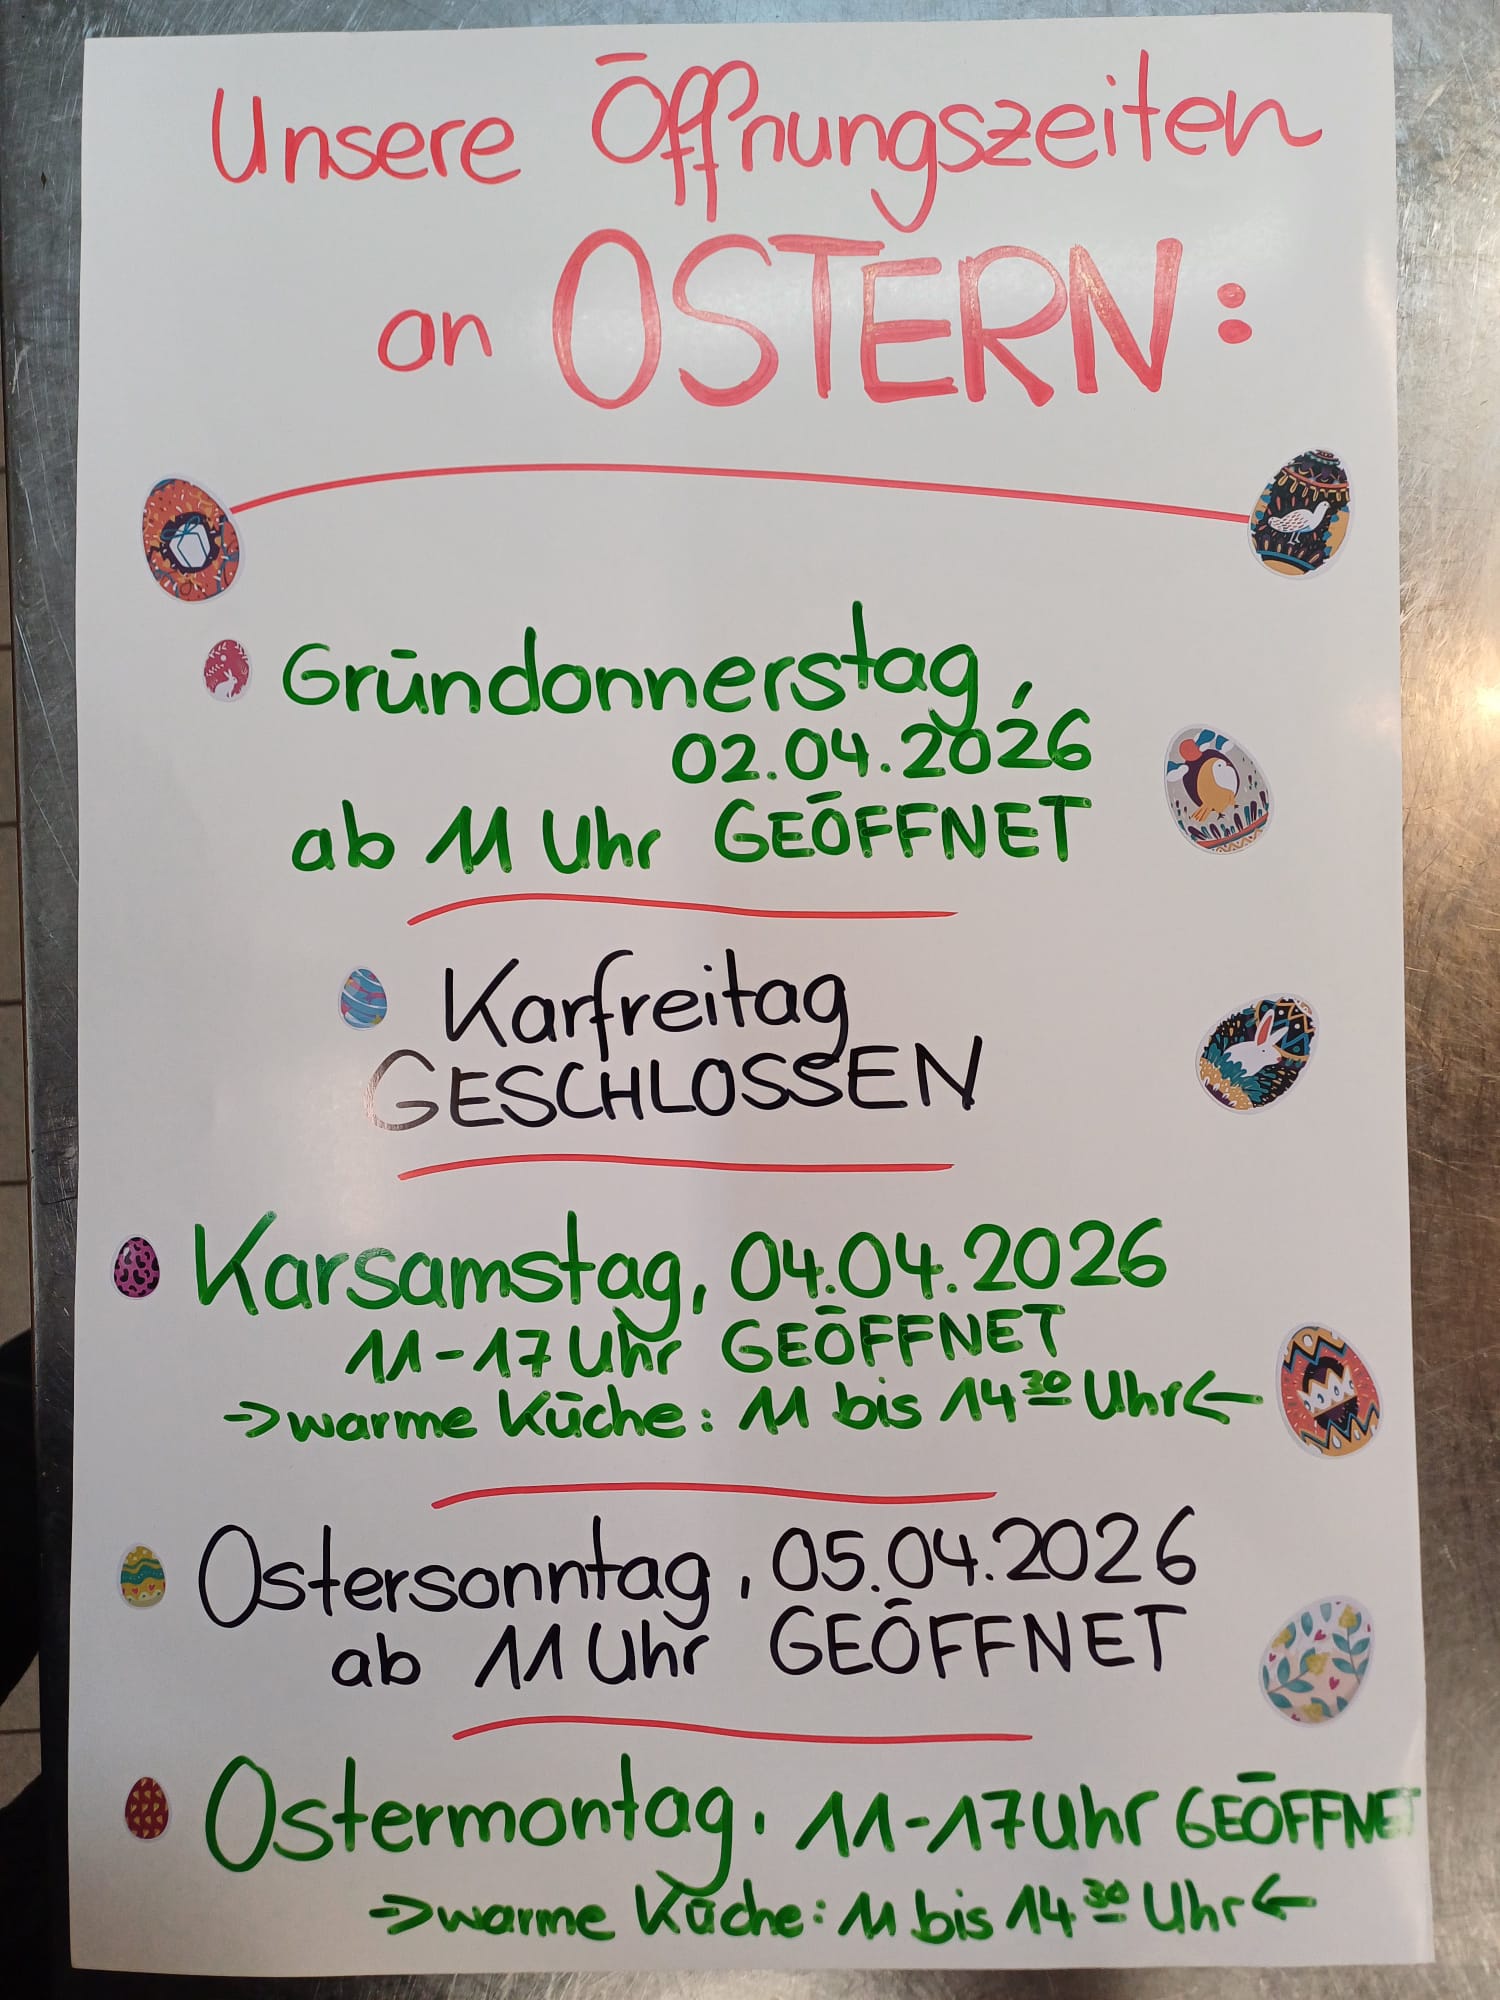 Unsere Öffnungszeiten
an OSTERN:
Gründonnerstag,
02.04.2026
ab 11 Uhr GEÖFFNET
Karfreitag
GESCHLOSSEN
Karsamstag, 04.04.2026
11-17 Uhr GEÖFFNET
->warme Küche: 11 bis 14³⁰ Uhr<-
Ostersonntag, 05.04.2026
ab 11 Uhr GEÖFFNET
Ostermontag, 11-17 Uhr GEÖFFNET
->warme Küche: 11 bis 14³⁰ Uhr<-